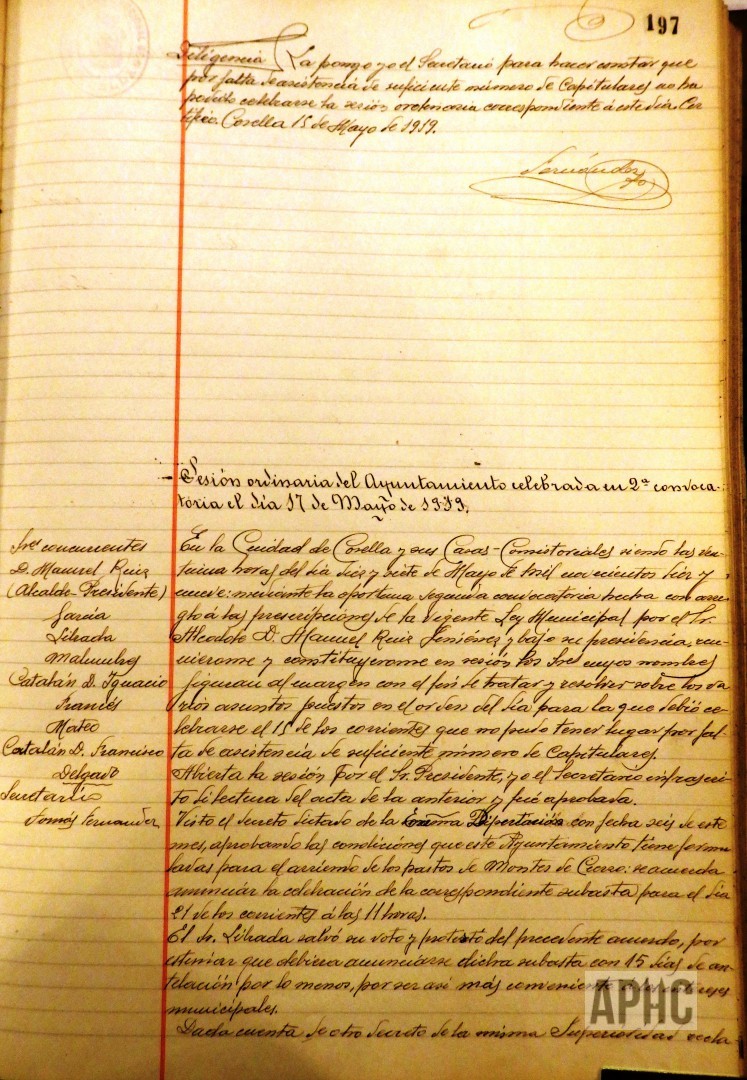 197
Diligencia La pongo yo el Secretario para hacer constar que
por falta de asistencia de suficiente número de Capitulares no ha
podido celebrarse la sesión ordinaria correspondiente á este día. Cer-
tifico. Corella 15 de Mayo de 1919.
Fernández
Sesión ordinaria del Ayuntamiento celebrada en 2ª convoca-
toria el día 17 de Mayo de 1919.
Sres concurrentes
D. Manuel Ruiz
(Alcalde-Presidente)
García
Librada
Malumbres
Catalán D. Ignacio
Francés
Mateo
Catalán D. Francisco
Delgado
Secretario
Tomás Fernandez
En la Ciudad de Corella y sus Casas-Consistoriales siendo las vein-
tiuna horas del día diez y siete de Mayo de mil novecientos diez y
nueve: mediante la oportuna segunda convocatoria hecha con arre-
glo á las prescripciones de la vigente Ley Municipal por el Sr.
Alcalde D. Manuel Ruiz Jiménez y bajo su presidencia, reu-
nieronse y constituyeronse en sesión los Sres cuyos nombres
figuran al margen con el fin de tratar y resolver sobre los va-
rios asuntos puestos en el orden del día para la que debió ce-
lebrarse el 15 de los corrientes que no pudo tener lugar por fal-
ta de asistencia de suficiente número de Capitulares.
Abierta la sesión por el Sr. Presidente, yo el Secretario infrascri-
to dí lectura del acta de la anterior y fué aprobada.
Visto el decreto dictado de la Excma Diputación con fecha seis de este
mes, aprobando las condiciones que este Ayuntamiento tiene formu-
ladas para el arriendo de los pastos de Montes de Cierzo: se acuerda
anunciar la celebración de la correspondiente subasta para el día
21 de los corrientes á las 11 horas.
El Sr. Librada salvó su voto y protestó del precedente acuerdo, por
estimar que debiera anunciarse dicha subasta con 15 días de an-
telación por lo menos, por ser asi más conveniente á los intereses
municipales.
Dada cuenta de otro decreto de la misma Superioridad decla-
APHC